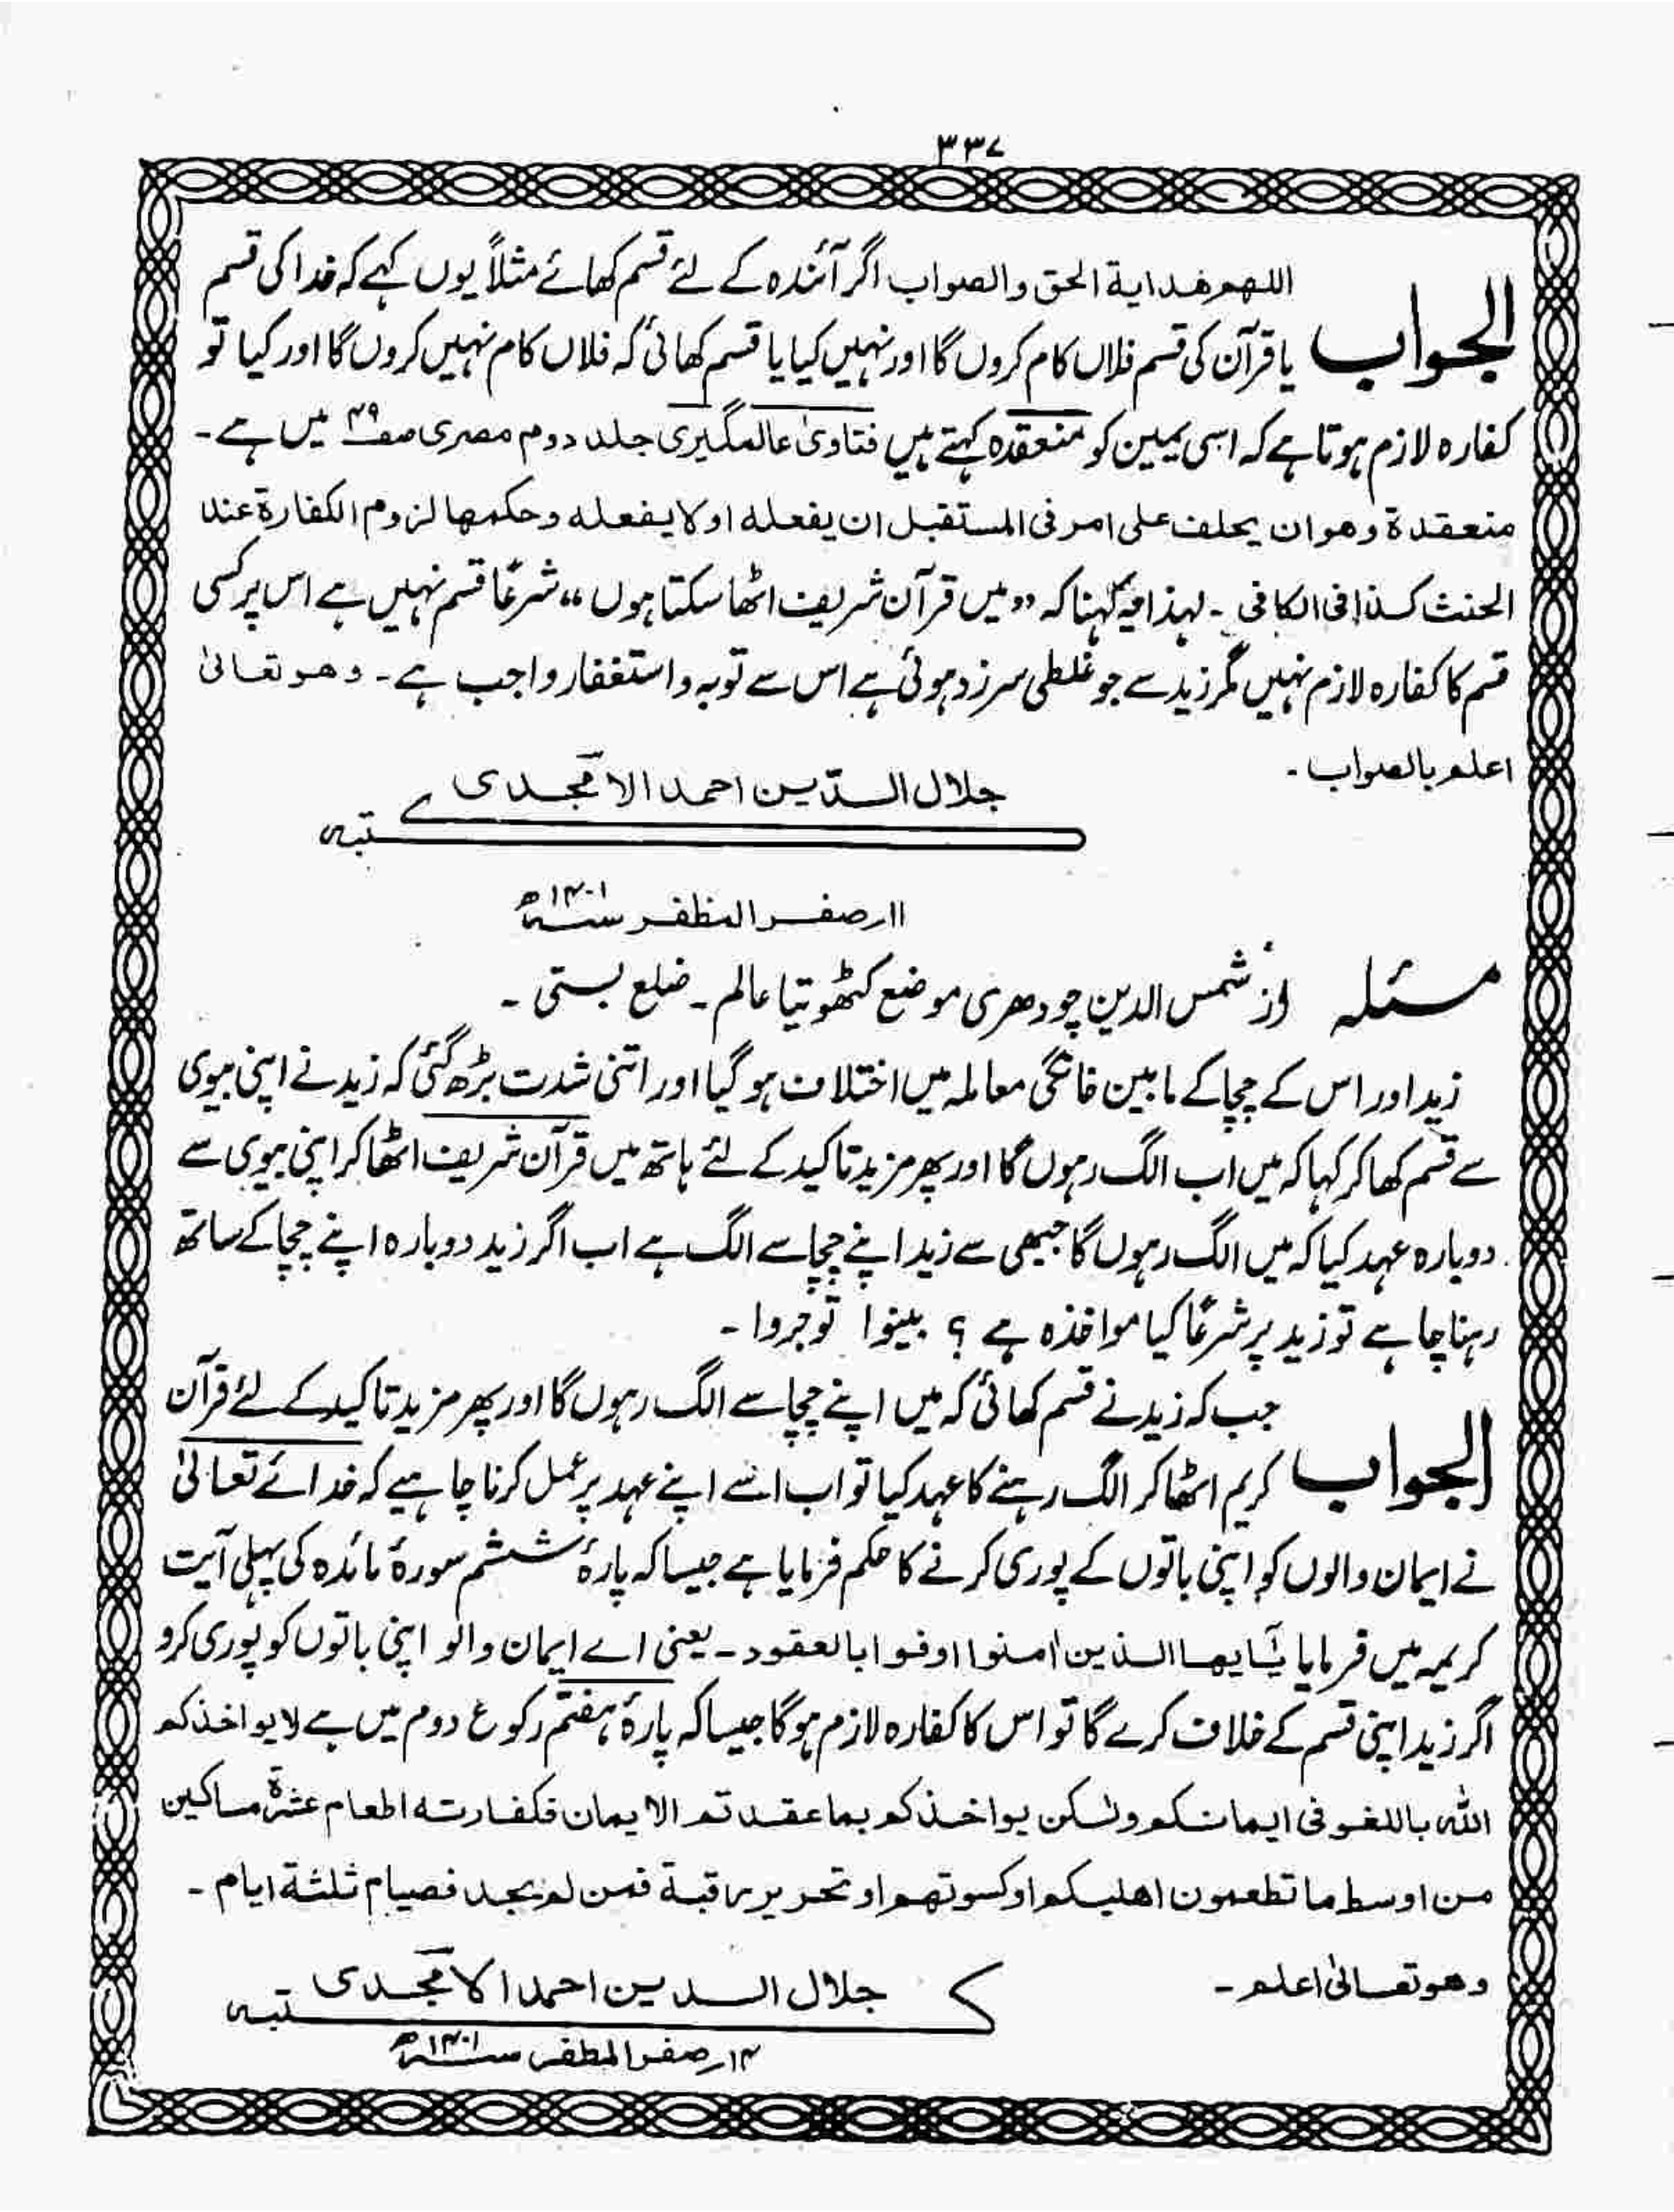 ۳۳۷
الجواب اللھم ھدایة الحق والصواب اگر آئندہ کے لئے قسم کھائے مثلاً یوں کہے کہ خدا کی قسم
یا قرآن کی قسم فلاں کام کروں گا اور نہیں کیا یا قسم کھائی کہ فلاں کام نہیں کروں گا اور کیا تو
کفارہ لازم ہوتا ہے کہ اسی یمین کو منعقدہ کہتے ہیں فتاویٰ عالمگیری جلد دوم مصری صفہ ۴۹ میں ہے۔
منعقدة وھو ان یحلف علی امر فی المستقبل ان یفعله او لا یفعله وحکمھا لزوم الکفارة عند
الحنث کذا فی الکافی ۔ لہذا یہ کہنا کہ ”میں قرآن شریف اٹھا سکتا ہوں“ شرعًا قسم نہیں ہے اس پر کسی
قسم کا کفارہ لازم نہیں مگر زید سے جو غلطی سرزد ہوئی ہے اس سے توبہ و استغفار واجب ہے۔ وھو تعالیٰ
اعلم بالصواب۔
جلال الدّین احمد الامجدی
کتبہ
۱۱ر صفر المظفر سنہ ۱۴۰۱ھ
مسئلہ از شمس الدین چودھری موضع کٹھوتیا عالم۔ ضلع بستی۔
زید اور اس کے چچا کے مابین خانگی معاملہ میں اختلاف ہو گیا اور اتنی شدت بڑھ گئی کہ زید نے اپنی بیوی
سے قسم کھا کر کہا کہ میں اب الگ رہوں گا اور پھر مزید تاکید کے لئے ہاتھ میں قرآن شریف اٹھا کر اپنی بیوی سے
دوبارہ عہد کیا کہ میں الگ رہوں گا جبھی سے زید اپنے چچا سے الگ ہے اب اگر زید دوبارہ اپنے چچا کے ساتھ
رہنا چاہے تو زید پر شرعًا کیا مواخذہ ہے ؟ بینوا توجروا۔
الجواب جب کہ زید نے قسم کھائی کہ میں اپنے چچا سے الگ رہوں گا اور پھر مزید تاکید کے لئے قرآن
کریم اٹھا کر الگ رہنے کا عہد کیا تو اب اسے اپنے عہد پر عمل کرنا چاہیے کہ خدائے تعالیٰ
نے ایمان والوں کو اپنی باتوں کے پوری کرنے کا حکم فرمایا ہے جیسا کہ پارۂ ششم سورۂ مائدہ کی پہلی آیت
کریمہ میں فرمایا یٰٓایھا الذین اٰمنوا اوفوا بالعقود۔ یعنی اے ایمان والو اپنی باتوں کو پوری کرو
اگر زید اپنی قسم کے خلاف کرے گا تو اس کا کفارہ لازم ہوگا جیسا کہ پارۂ ہفتم رکوع دوم میں ہے لا یواخذکم
اللّٰہ باللغو فی ایمانکم ولٰکن یواخذکم بما عقدتم الایمان فکفارته اطعام عشرة مساکین
من اوسط ما تطعمون اھلیکم او کسوتھم او تحریر رقبة فمن لم یجد فصیام ثلثة ایام ۔
وھو تعالیٰ اعلم۔
جلال الدین احمد الامجدی
کتبہ
۱۴ر صفر المظفر سنہ ۱۴۰۱ھ